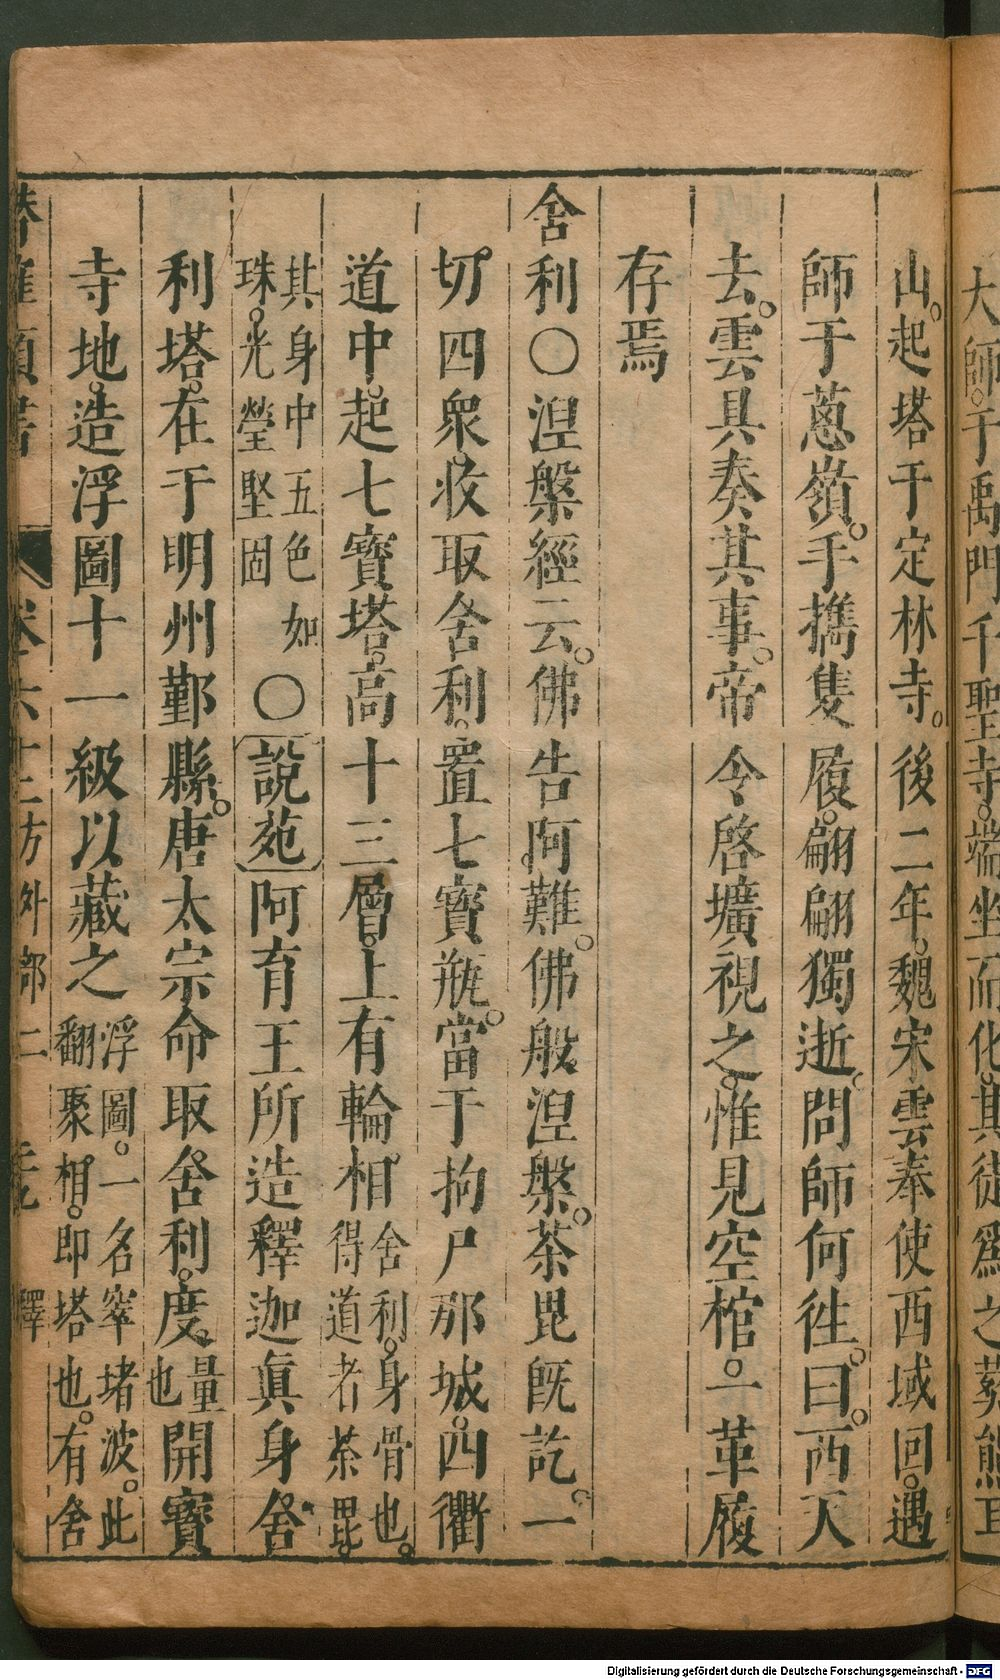 大師于禹門千聖寺端坐而化其徒爲之葬熊耳
山起塔于定林寺後二年魏宋雲奉使西域回遇
師于蔥嶺手攜隻履翩翩獨逝問師何徃曰西天
去雲具奏其事帝令啓壙視之惟見空棺一革履
存焉
舍利○涅槃經云佛告阿難佛般涅槃茶毘旣訖一
切四衆收取舍利置七寶瓶當于拘尸那城四衢
道中起七寶塔高十三層上有輪相舍利身骨也得道者茶毘
其身中五色如珠光瑩堅固○說苑阿育王所造釋迦眞身舍
利塔在于明州鄞縣唐太宗命取舍利度量也開寶
寺地造浮圖十一級以藏之浮圖一名窣堵波此翻聚相即塔也有舍
卷六十三方外部二
釋
Digitalisierung gefördert durch die Deutsche Forschungsgemeinschaft - DFG